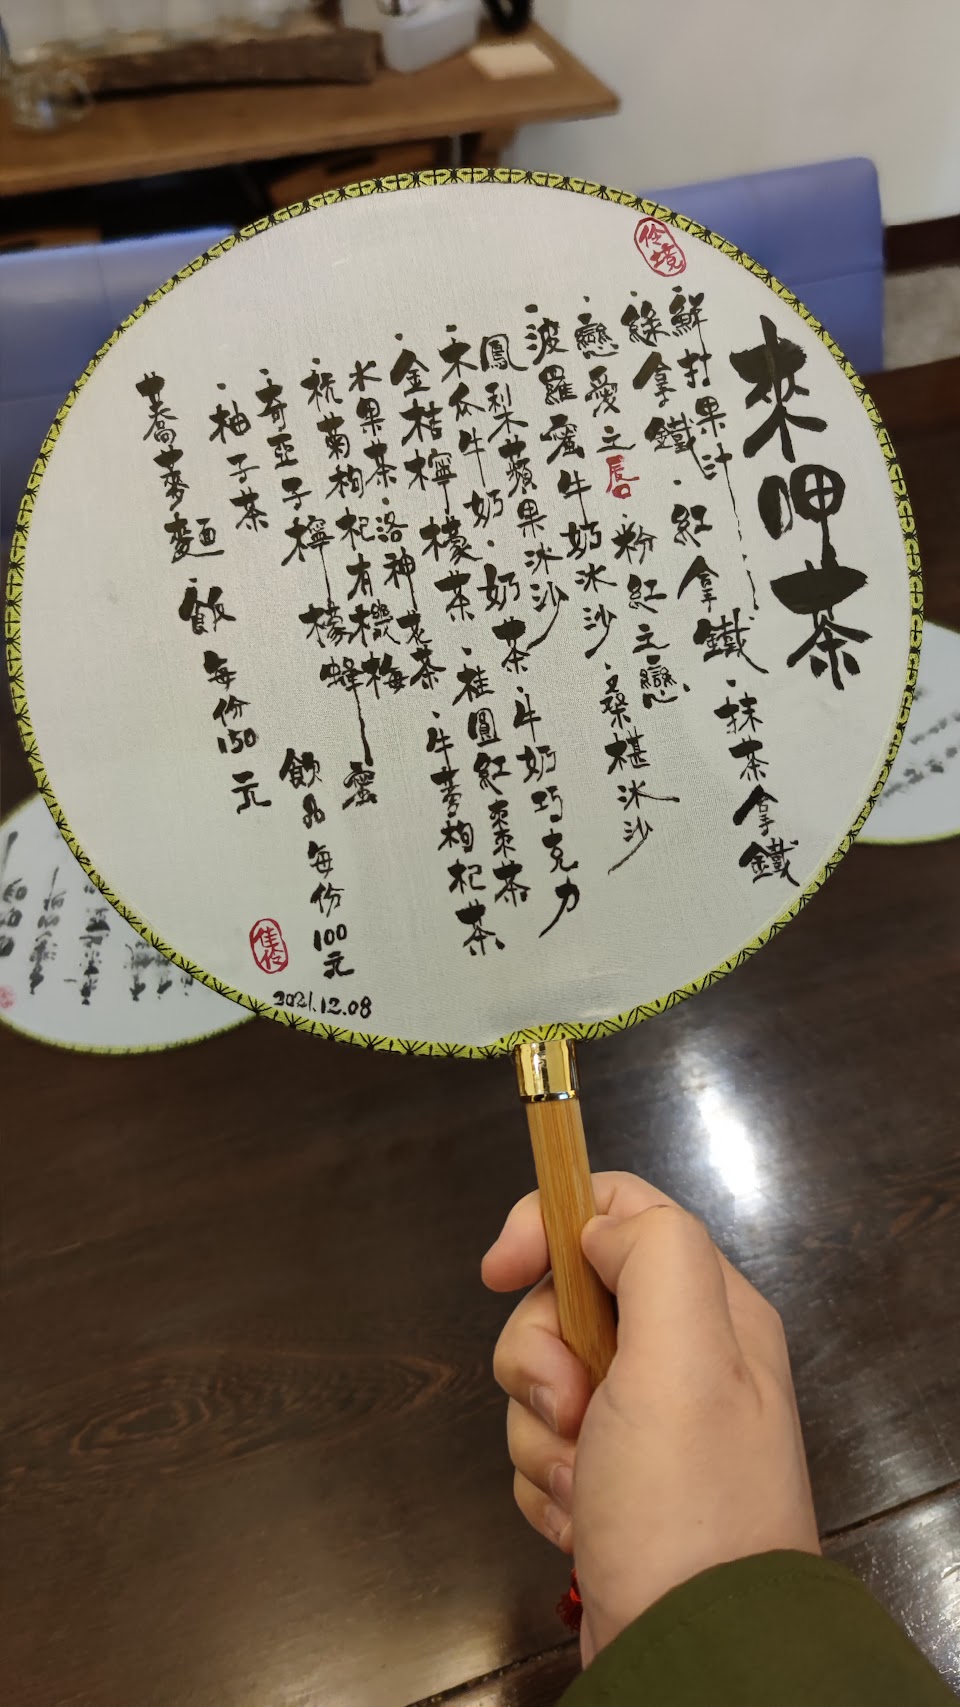 伶境
來呷茶
鮮打果汁
·綠拿鐵·紅拿鐵·抹茶拿鐵
·戀愛之唇·粉紅之戀·桑椹冰沙
·波羅蜜牛奶冰沙
鳳梨蘋果冰沙·牛奶巧克力
·木瓜牛奶·奶茶·桂圓紅棗茶
·金桔檸檬茶·牛蒡枸杞茶
水果茶·洛神花茶
·杭菊枸杞有機梅
·奇亞子檸檬蜂蜜
·柚子茶 飲品每份100元
蕎麥麵·飯每份150元
佳伶
2021.12.08